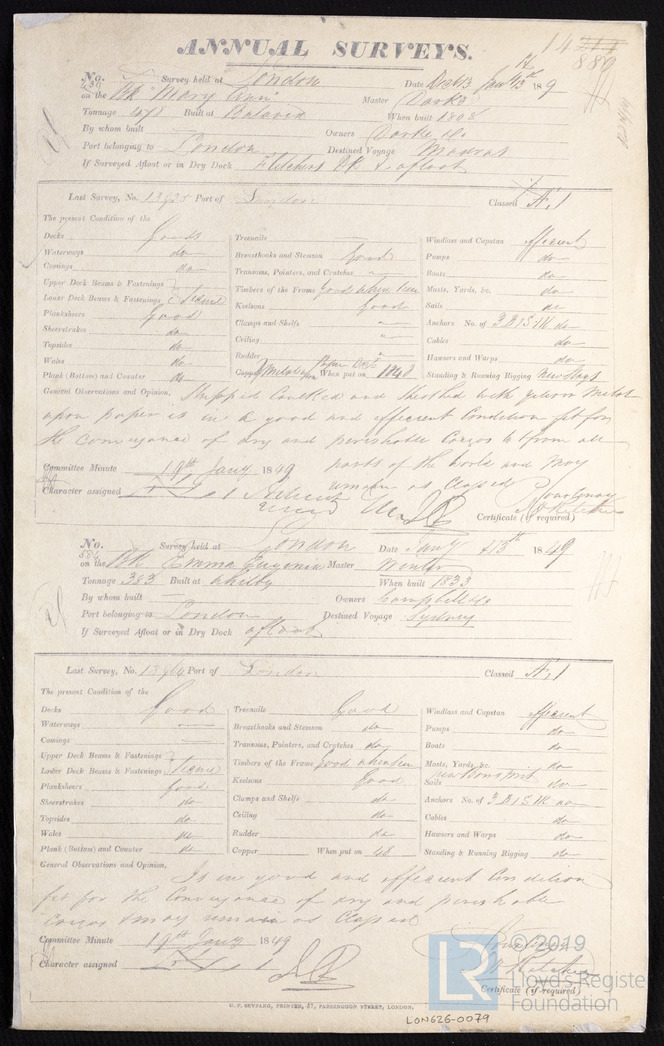 ANNUAL SURVEYS.
14
889
No. Survey held at London Date Decr 13 Jany 13th 1849
on the Bk "Mary Ann" Master Darke
Tonnage 478 Built at Batavia When built 1808
By whom built Owners Darke & Co
Port belonging to London Destined Voyage Madras
If Surveyed Afloat or in Dry Dock Fletchers & afloat
Last Survey, No. Port of London Classed Æ 1
The present Condition of the
Decks Good
Waterways do
Comings do
Upper Deck Beams & Fastenings
Lower Deck Beams & Fastenings
Planksheers Good
Sheerstrakes do
Topsides do
Wales do
Plank (Bottom) and Counter do
Treenails
Breasthooks and Stemson Good
Transoms, Pointers, and Crutches "
Timbers of the Frame good where seen
Keelsons Good
Clamps and Shelfs "
Ceiling "
Rudder "
Copper When put on 1848
Windlass and Capstan efficient
Pumps do
Boats do
Masts, Yards, &c. do
Sails do
Anchors No. of 3 B 1 S 1 K do
Cables do
Hawsers and Warps do
Standing & Running Rigging
General Observations and Opinion, Stripped Caulked and Sheathed with yellow metal
upon paper is in a good and efficient Condition fit for
the conveyance of dry and perishable Cargos to & from all
parts of the world and may
remain as Classed
Committee Minute 19th Jany 1849
Character assigned
Certificate (if required)
No. 584 Survey held at London Date Jany 13th 1849
on the Bk Emma Eugenia Master
Tonnage 383 Built at Whitby When built 1833
By whom built Owners Campbell & Co
Port belonging to London Destined Voyage Sydney
If Surveyed Afloat or in Dry Dock afloat
Last Survey, No. Port of London Classed Æ 1
The present Condition of the
Decks Good
Waterways
Comings
Upper Deck Beams & Fastenings
Lower Deck Beams & Fastenings
Planksheers good
Sheerstrakes do
Topsides do
Wales do
Plank (Bottom) and Counter do
Treenails Good
Breasthooks and Stemson do
Transoms, Pointers, and Crutches do
Timbers of the Frame good where seen
Keelsons Good
Clamps and Shelfs do
Ceiling do
Rudder do
Copper When put on 48
Windlass and Capstan efficient
Pumps do
Boats do
Masts, Yards, &c. do
new Bowsprit
Sails do
Anchors No. of 3 B 1 S 1 K
Cables do
Hawsers and Warps do
Standing & Running Rigging do
General Observations and Opinion, Is in good and efficient Condition
fit for the Conveyance of dry and perishable
Cargos & may remain as Classed
Committee Minute 19th Jany 1849
Character assigned
Certificate (if required)
G. F. SEYFANG, PRINTER, 57, FARRINGDON STREET, LONDON.
LON626-0079
LR © 2019
Lloyd's Register
Foundation